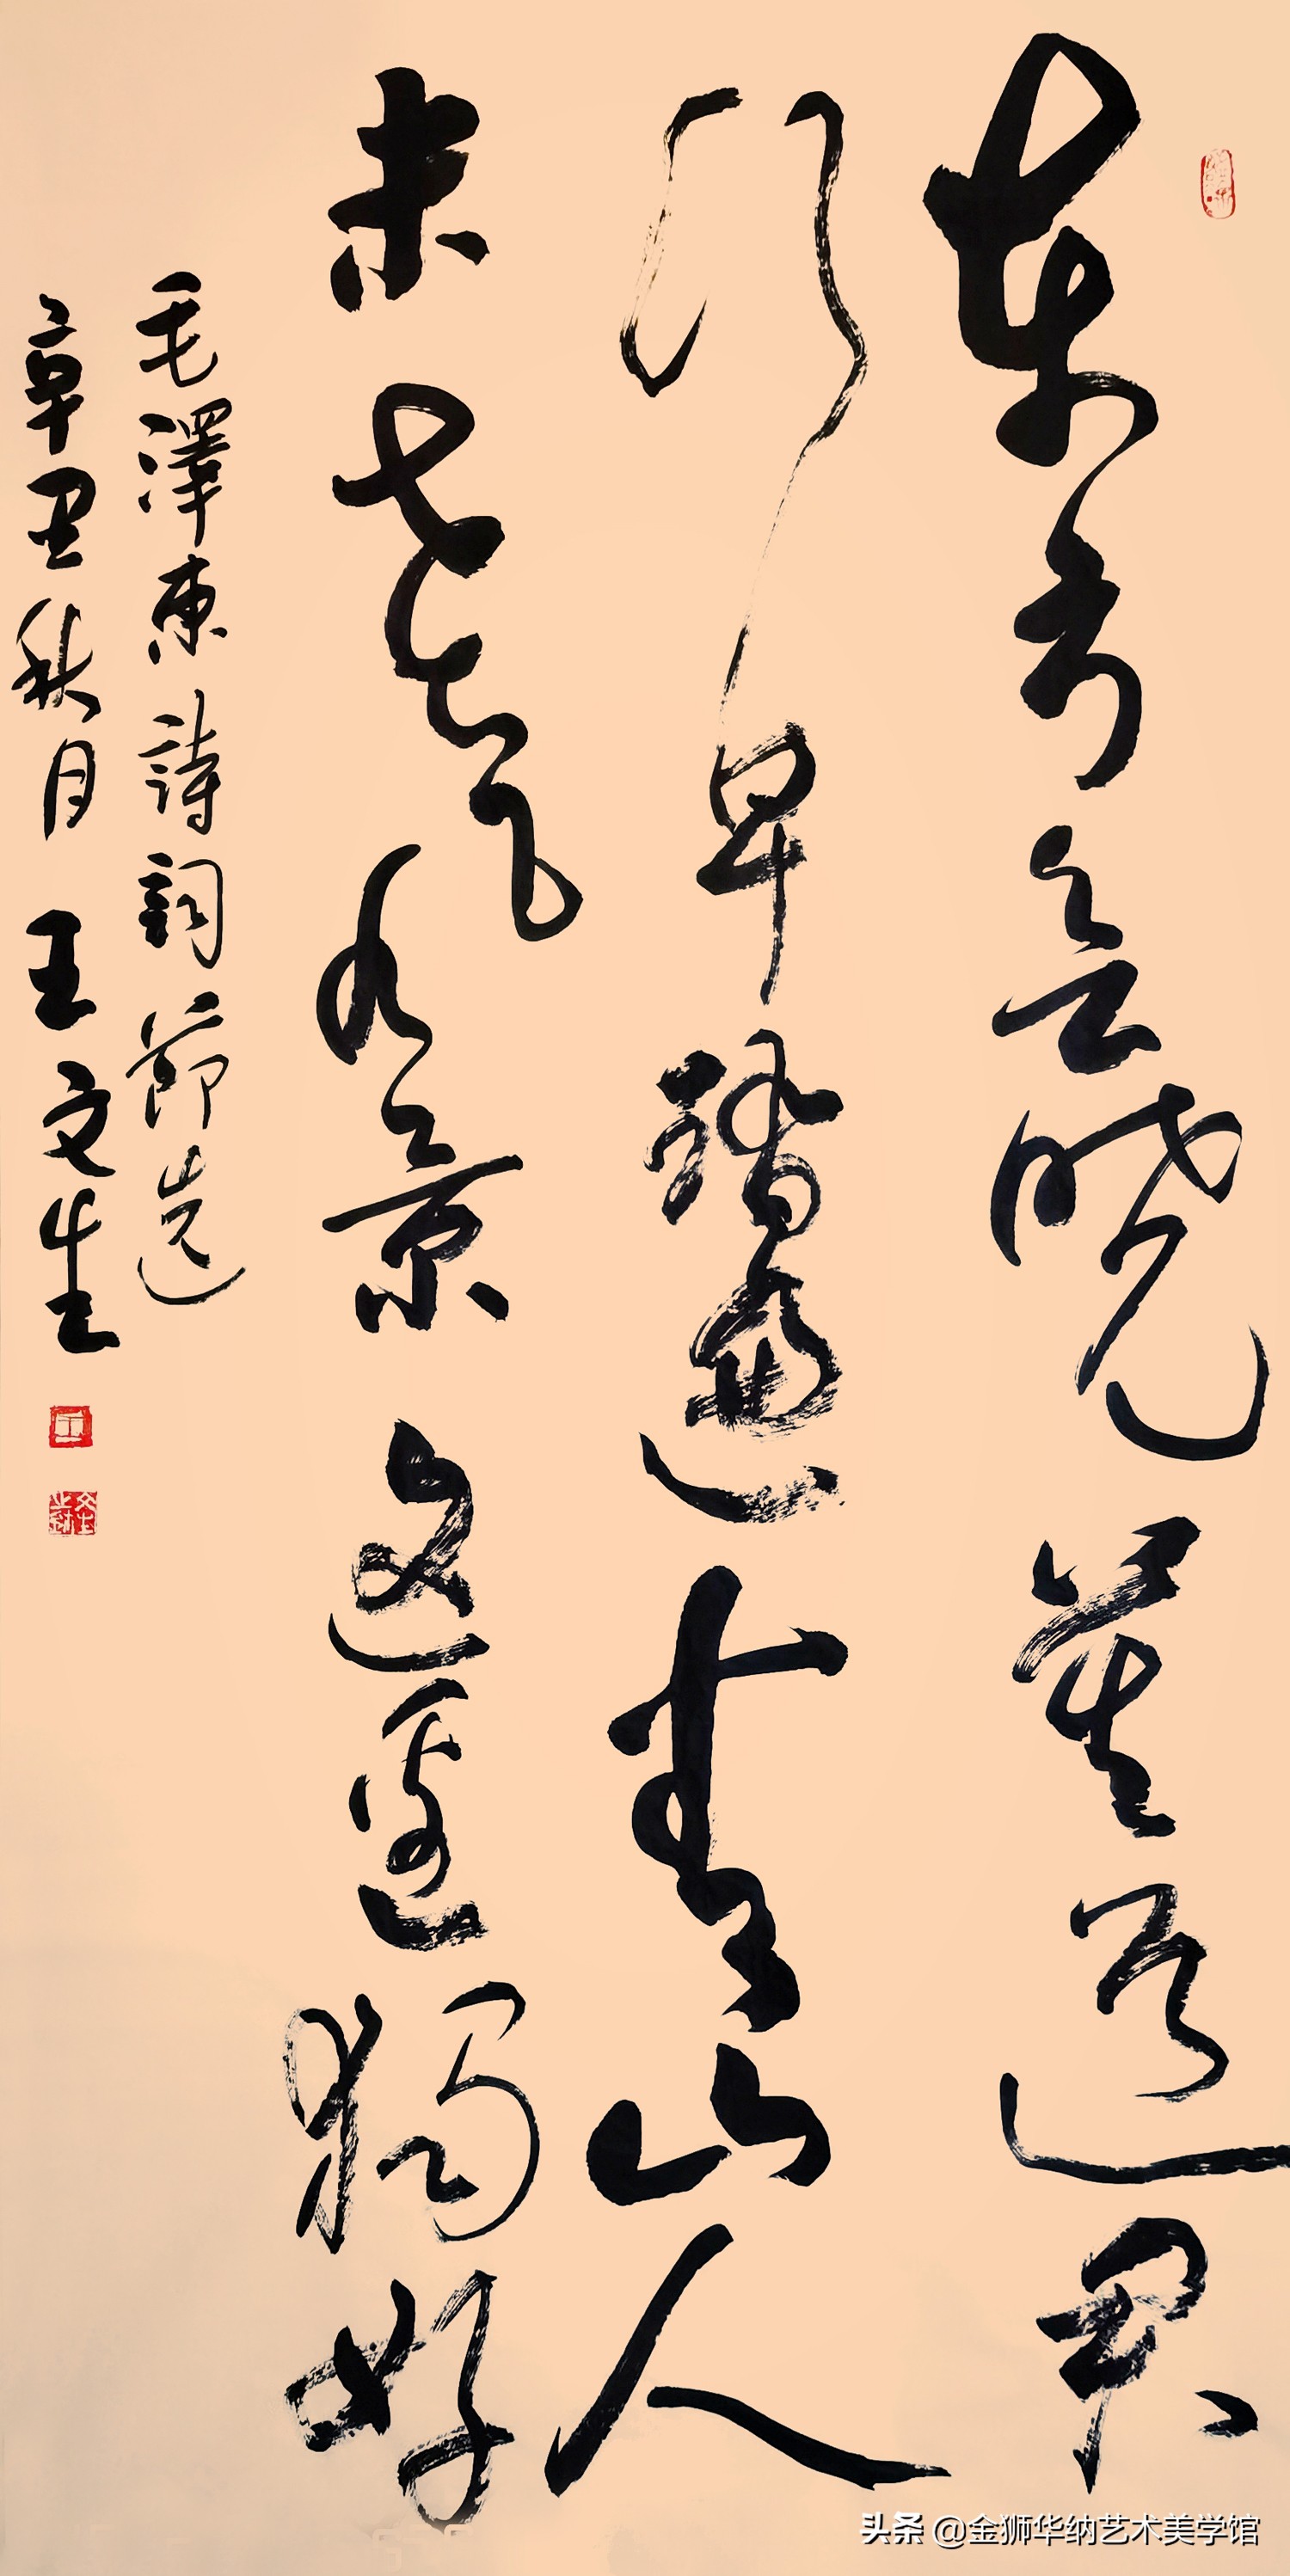 东方欲晓莫道君
行早踏遍青山人
未老风景这邊獨好
毛澤東詩詞節选
辛丑秋月 王文生
王
头条 @金狮华纳艺术美学馆